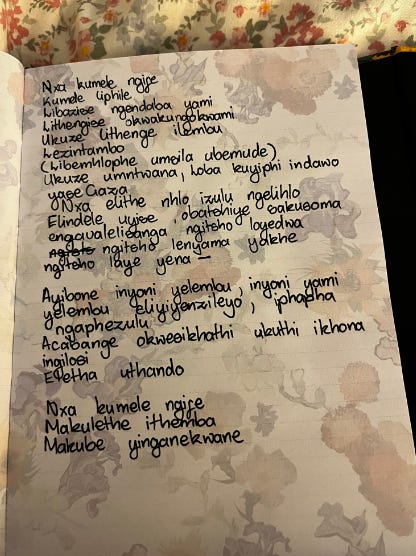 Nxa kumele ngife
Kumele uphile
Libazise ngendaba yami
Lithengise okwakungokwami
Ukuze lithenge ilembu
Lezintambo
(Libemhlophe umsila ubemude)
Ukuze umntwana, loba kuyiphi indawo
yase Gaza
Nxa elithe nhlo izulu ngelihlo
Elindele uyise, obatshiye sakusoma
engavalelisanga ngitsho loyedwa
ngitsho lenyama yakhe
ngitsho laye yena —
Ayibone inyoni yelembu, inyoni yami
yelembu eliyiyenzileyo, iphapha
ngaphezulu
Acabange okwesikhathi ukuthi ikhona
ingilosi
Eletha uthando
Nxa kumele ngife
Makulethe ithemba
Makube yinganekwane